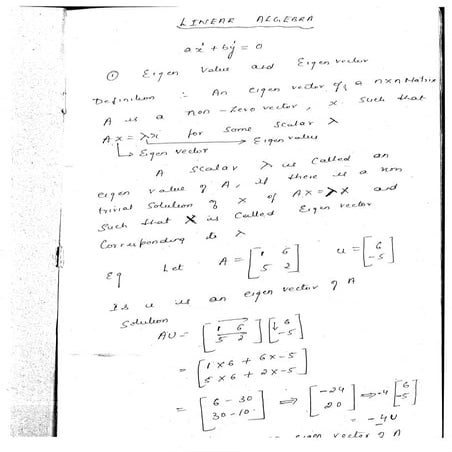 LINEAR ALGEBRA
ax + by = 0
① Eigen Value and Eigen vector
Definition :- An eigen vector of a nxn Matrix
A is a non-zero vector, x such that
Ax = λx for some scalar λ
→ Eigen value
→ Eigen vector
A scalar λ is called an
eigen value of A, if there is a non
trivial solution of x of AX = λX and
such that x is called Eigen vector
Corresponding to λ
Eg Let A = [1 6 5 2] u = [6 -5]
Is u is an eigen vector of A
Solution
AU = [1 6 5 2] [6 -5]
= [1×6 + 6×-5 5×6 + 2×-5]
= [6 - 30 30 - 10] ⇒ [-24 20] ⇒ -4 [6 -5]
= -4U
eigen vector of A